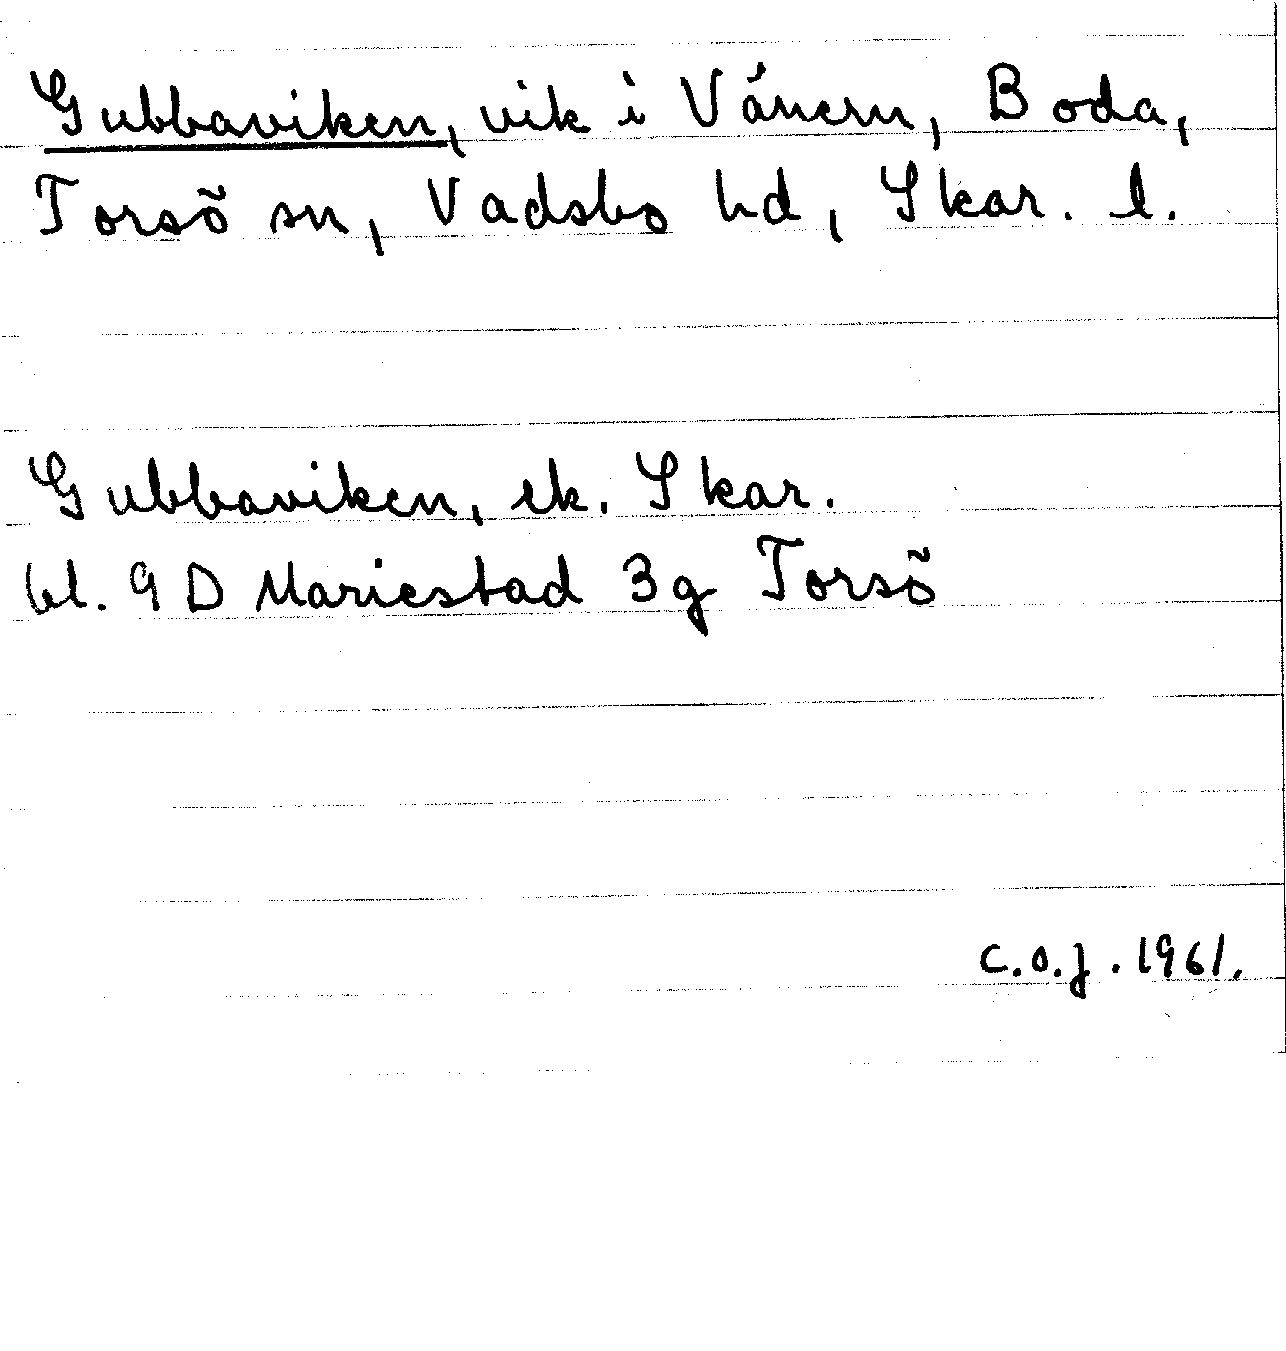 Gubbaviken, vik i Vänern, Boda,
Torsö sn, Vadsbo hd, Skar. l.
Gubbaviken, ek. Skar.
bl. 9 D Mariestad 3g Torsö
C.O.J. 1961.